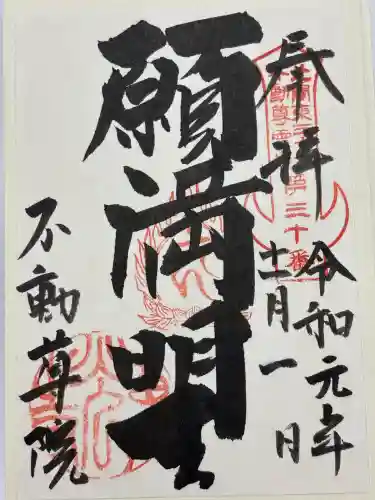 奉拝
令和元年
十一月一日
願満明王
不動尊院